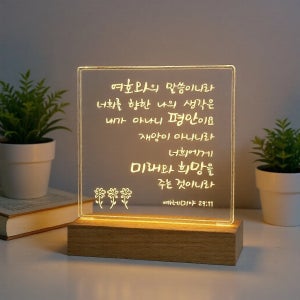 여호와의 말씀이니라
너희를 향한 나의 생각은
내가 아나니 평안이요
재앙이 아니니라
너희에게
미래와 희망을
주는 것이니라
예레미야 29:11